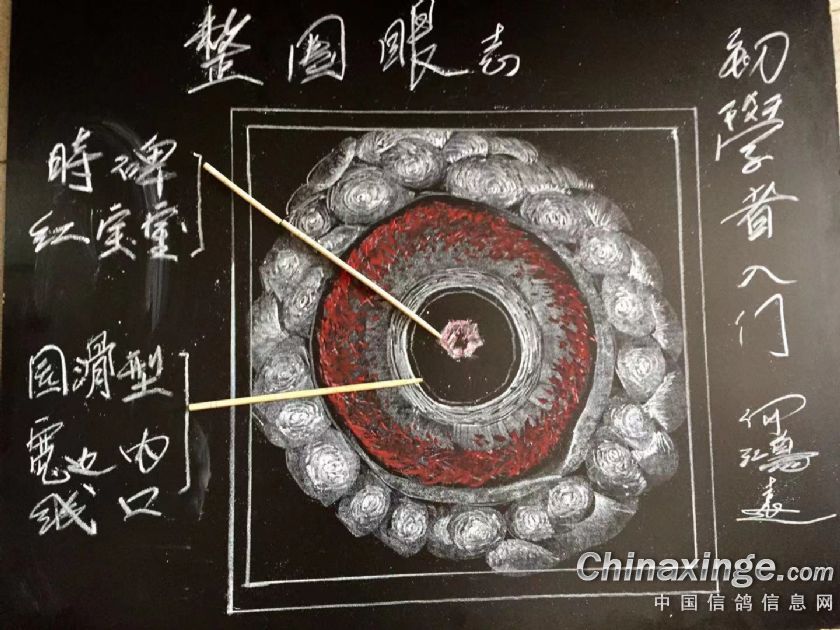 整圆眼志
時碑
红宝室
圆滑型
宽边内
线口
初學者入门
何
Chinaxinge.com
中国信鸽信息网